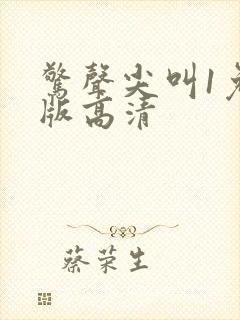 驚聲尖叫1免
版高清
蔡荣生